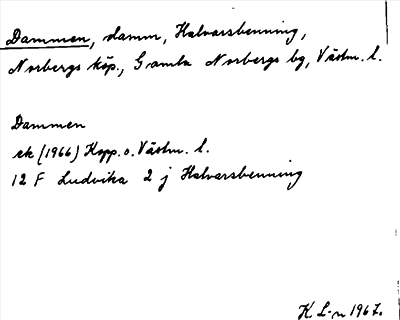 Dammen, damm, Halvarsbenning,
Norbergs köp., Gamla Norbergs bg, Västm. l.
Dammen
ek (1966) Kopp. o. Västm. l.
12 F Ludvika 2 j Halvarsbenning
K. L-n 1967.